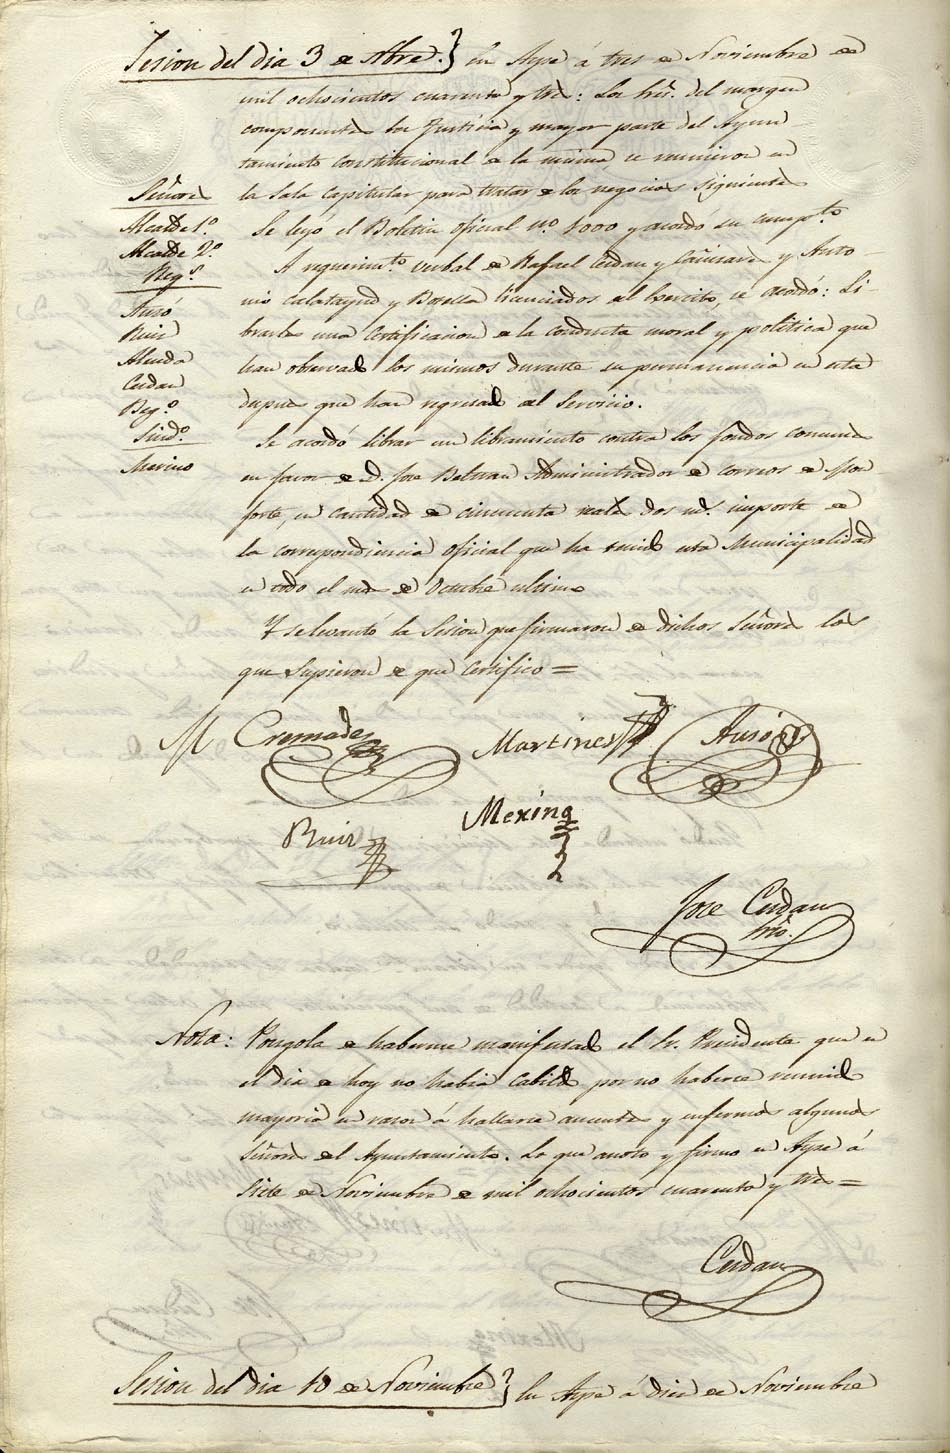 Sesion del dia 3 de Nbre. } En Aspe á tres de Noviembre de
mil ochocientos cuarenta y tres: Los Sres. del margen
componentes la Justicia y mayor parte del Ayun
tamiento Constitucional de la misma se reunieron en
la Sala Capitular para tratar de los negocios siguientes
Señores
Alcalde 1º.
Alcalde 2º.
Regs.
Auró
Ruiz
Almda
Cerdan
Reg.º
Sind.º
Merino
Se leyó el Boletin oficial nº. 1000 y acordó su cumpto.
A requerimto. verbal de Rafael Cerdan y Cañizares y Anto
nio Calatayud y Botella licenciados del Exercito, se acordó: Li-
brarles una Certificacion de la conducta moral y politica que
han observado los mismos durante su permanencia en esta
despues que han regresado del Servicio.
Se acordó librar un libramiento contra los fondos comunes
en favor de D. Jose Beltran Administrador de correos de Mon
forte, en cantidad de cincuenta reales dos ms. importe de
la correspondencia oficial que ha tenido esta Municipalidad
en todo el mes de Octubre ultimo
Y se levantó la Sesion que firmaron de dichos Señores los
que supieron de que Certifico =
M Cremades
Martines
Auró
Ruiz
Mexino
Jose Cerdan
Srio.
Nota: Pongola de haberme manifestado el Sr. Presidente que en
el dia de hoy no habia Cabildo por no haberse reunido
mayoria en razon á hallarse ausentes y enfermos algunos
Señores del Ayuntamiento. Lo que anoto y firmo en Aspe á
Siete de Noviembre de mil ochocientos cuarenta y tres =
Cerdan
Sesion del dia 10 de Noviembre } En Aspe á diez de Noviembre